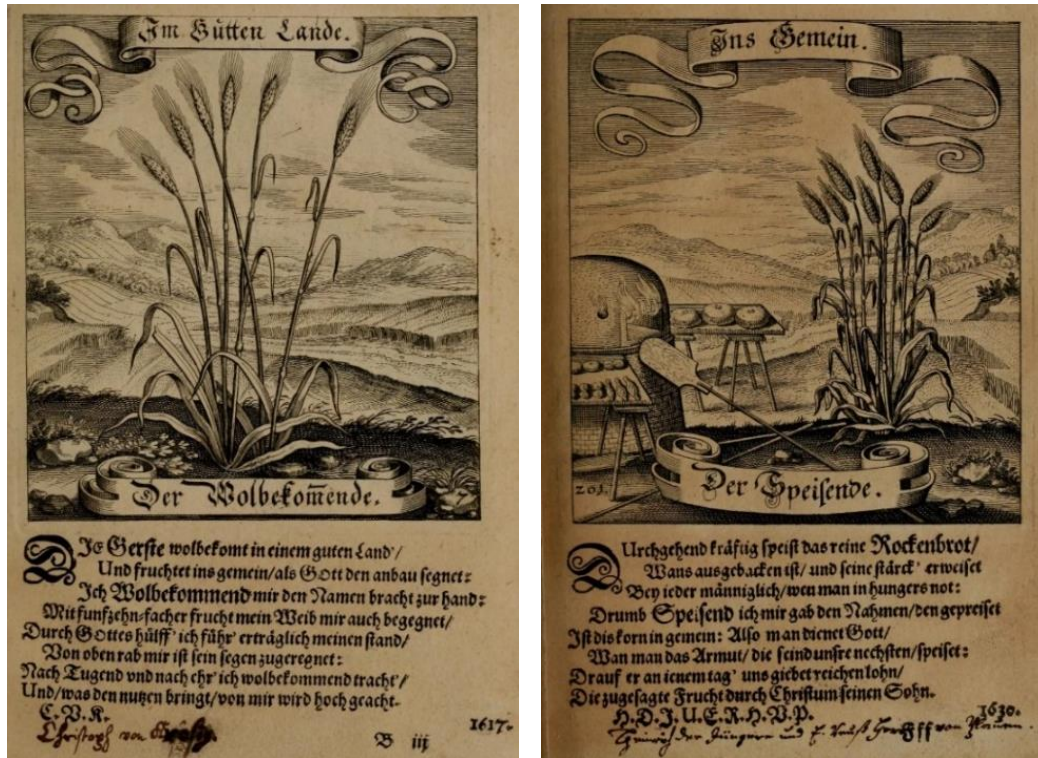 Im Gůtten Lande.
Der Wolbekom̄ende.
DJe Gerste wolbekomt in einem guten Land'/
Und fruchtet ins gemein/als GOtt den anbau segnet:
Ich Wolbekommend mir den Namen bracht zur hand:
Mit funfzehn-facher frucht mein Weib mir auch begegnet/
Durch GOttes hülff' ich führ' erträglich meinen stand/
Von oben rab mir ist sein segen zugeregnet:
Nach Tugend vnd nach ehr' ich wolbekommend tracht'/
Und/was den nutzen bringt/von mir wird hoch geacht.
C. V. K.
Christoph von
B iij
1617.
Ins Gemein.
201.
Der Speisende.
DUrchgehend kräftig speist das reine Rockenbrot/
Wans ausgebacken ist/ und seine stärck' erweiset
Bey ieder männiglich/wen man in hungers not:
Drumb Speisend ich mir gab den Nahmen/den gepreiset
Ist dis korn in gemein: Also man dienet Gott/
Wan man das Armut/ die seind unsre nechsten/speiset:
Drauf er an ienem tag' uns giebet reichen lohn/
Die zugesagte Frucht durch Christum seinen Sohn.
H. D. J. U. E. R. H. V. P.
1630.
Heinrich der Jüngere und E. von Plauen.